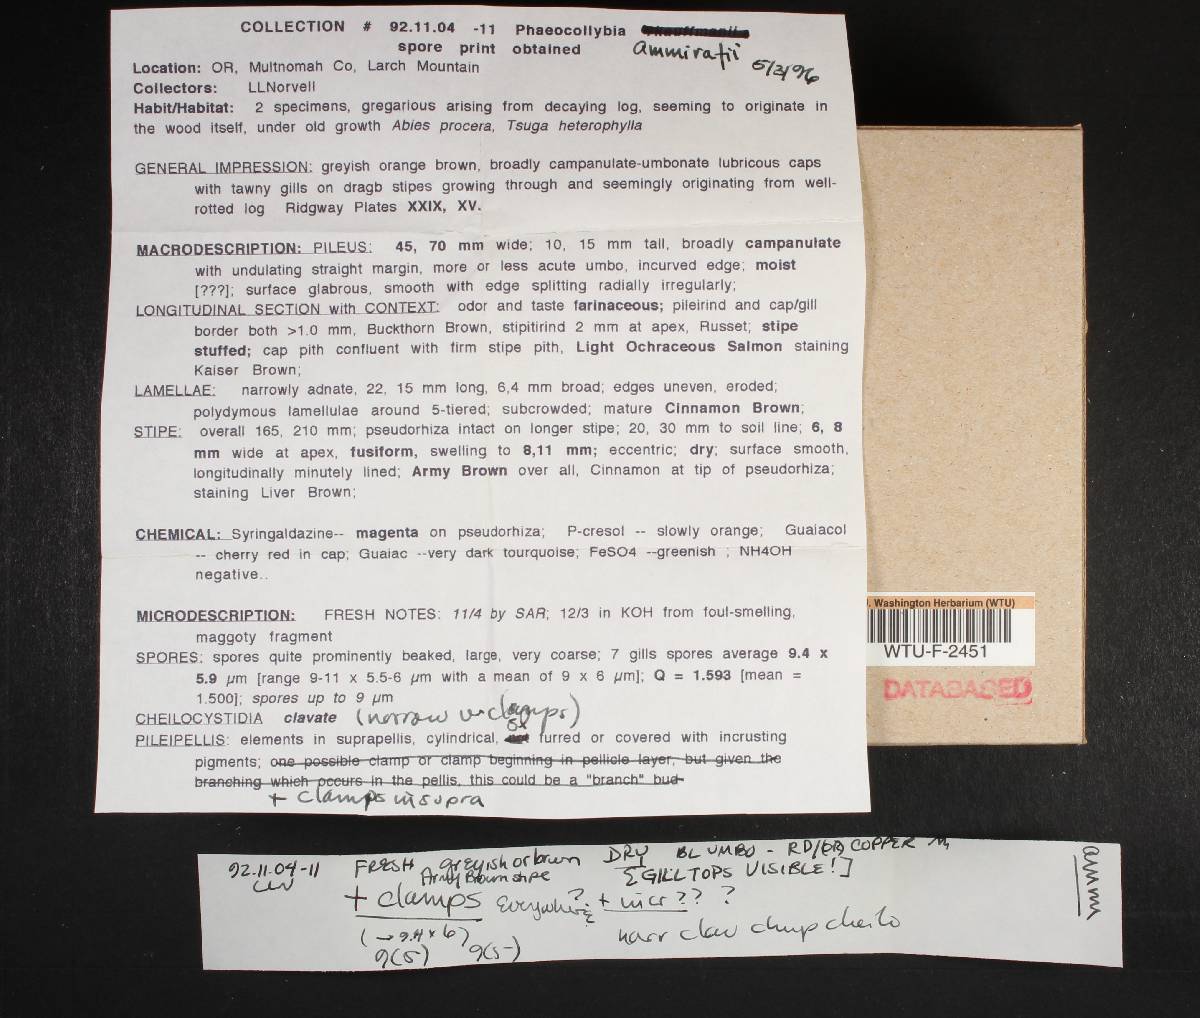 COLLECTION # 92.11.04 -11 Phaeocollybia kauffmanii
spore print obtained ammiratii 5/3/96
Location: OR, Multnomah Co, Larch Mountain
Collectors: LLNorvell
Habit/Habitat: 2 specimens, gregarious arising from decaying log, seeming to originate in
the wood itself, under old growth Abies procera, Tsuga heterophylla
GENERAL IMPRESSION: greyish orange brown, broadly campanulate-umbonate lubricous caps
with tawny gills on dragb stipes growing through and seemingly originating from well-
rotted log Ridgway Plates XXIX, XV.
MACRODESCRIPTION: PILEUS: 45, 70 mm wide; 10, 15 mm tall, broadly campanulate
with undulating straight margin, more or less acute umbo, incurved edge; moist
[???]; surface glabrous, smooth with edge splitting radially irregularly;
LONGITUDINAL SECTION with CONTEXT: odor and taste farinaceous; pileirind and cap/gill
border both >1.0 mm, Buckthorn Brown, stipitirind 2 mm at apex, Russet; stipe
stuffed; cap pith confluent with firm stipe pith, Light Ochraceous Salmon staining
Kaiser Brown;
LAMELLAE: narrowly adnate, 22, 15 mm long, 6,4 mm broad; edges uneven, eroded;
polydymous lamellulae around 5-tiered; subcrowded; mature Cinnamon Brown;
STIPE: overall 165, 210 mm; pseudorhiza intact on longer stipe; 20, 30 mm to soil line; 6, 8
mm wide at apex, fusiform, swelling to 8,11 mm; eccentric; dry; surface smooth,
longitudinally minutely lined; Army Brown over all, Cinnamon at tip of pseudorhiza;
staining Liver Brown;
CHEMICAL: Syringaldazine-- magenta on pseudorhiza; P-cresol -- slowly orange; Guaiacol
-- cherry red in cap; Guaiac --very dark tourquoise; FeSO4 --greenish ; NH4OH
negative..
MICRODESCRIPTION: FRESH NOTES: 11/4 by SAR; 12/3 in KOH from foul-smelling,
maggoty fragment
SPORES: spores quite prominently beaked, large, very coarse; 7 gills spores average 9.4 x
5.9 µm [range 9-11 x 5.5-6 µm with a mean of 9 x 6 µm]; Q = 1.593 [mean =
1.500]; spores up to 9 µm
CHEILOCYSTIDIA clavate (narrow w clamps)
PILEIPELLIS: elements in suprapellis, cylindrical, furred or covered with incrusting
pigments; one possible clamp or clamp beginning in pellicle layer, but given the
branching which occurs in the pellis, this could be a "branch" bud
+ clamps in supra
U. Washington Herbarium (WTU)
WTU-F-2451
DATABASED
92.11.04-11 FRESH greyish or brown DRY BL UMBO - RD/OR COPPER
LLN Army Brown stipe [GILL TOPS VISIBLE!]
+ clamps Everywhere ? + incr ?? ?
(→ 9.4 x 6) narr clav clamp cheilo
9(5) 9(5-)
amm